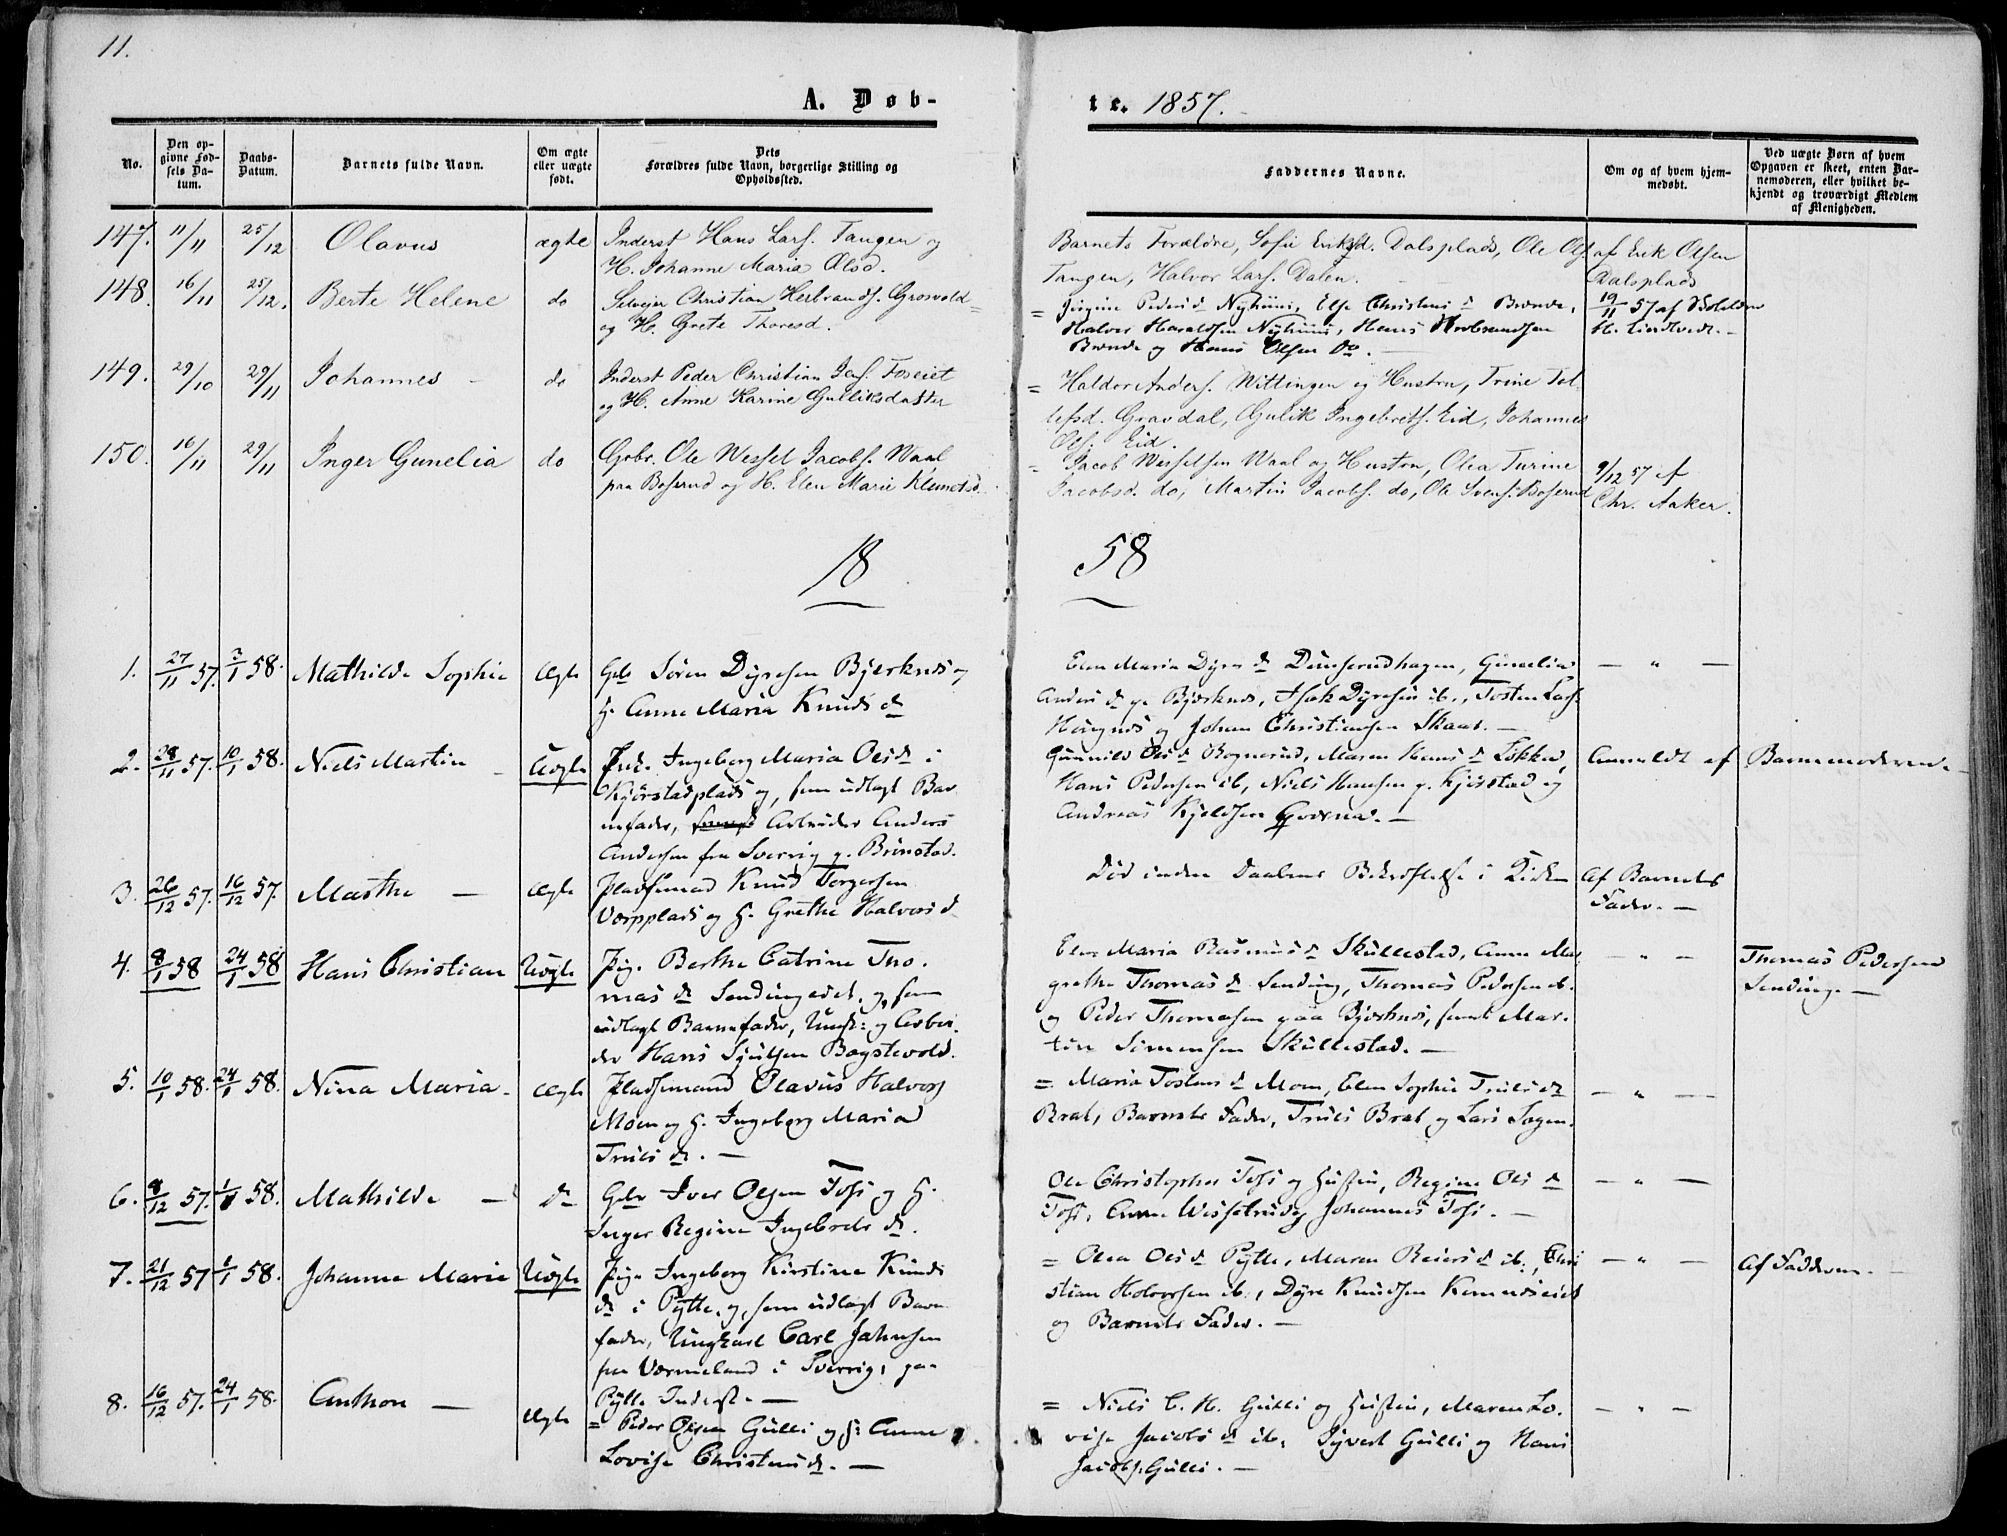 11.
A. Døb-
te. 1857.
No.
Den op-
givne Fød-
sels Da-
tum.
Daabs-
Datum.
Barnets fulde Navn.
Om ægte
eller uægte
født.
Dets
Forældres fulde Navn, borgerlige Stilling og
Opholdssted.
Faddernes Navne.
Om og af hvem hjem-
medøbt.
Ved uægte Børn af hvem
Opgaven er skeet, enten Bar-
nemoderen, eller hvilket be-
kjendt og troværdigt Medlem
af Menigheden.
147. 11/11 25/12 Olavus ægte Inderst Hans Lars. Tangen og
H. Johanne Maria Olsd.
Barnets Forældre, Sofie Eriksd. Dalsplads, Ole Ols.
Tangen, Halvor Lars. Dalen.
af Erik Olsen
Dalsplads
148. 16/11 25/12. Berte Helene do Selvejer Christian Herbrands. Grosvold
og H. Grete Thoresd.
= Jörgine Peders d Nyhuus, Else Christens d Brænde,
Halvor Haraldsen Nyhuus, Hans Herbrandsen
Brænde og Hans Olsen do. -
19/11 57 af
H. Lindtvedt. -
149. 29/10 29/11 Johannes - do Inderst Peder Christian Jas. Foseiet
og H. Anne Karine Gulliksdatter
= Haldor Anders. Wittingen og Hustru, Trine Tol
lefsd. Gravdal, Gulik Ingebrets. Eid, Johannes
Ols. Eid.
150. 16/11 29/11 Inger Gunelia do Gbr. Ole Wessel Jacobs. Waal
paa Boserud og H. Elen Marie Klemetsd.
= Jacob Wesselsen Waal og Hustru, Olea Turine
Jacobsd. do, Martin Jacobs. do, Ole Svens. Boserud
9/12 57 af
Chr. Aaker.
18 58
1. 27/11 57. 3/1 58. Mathilde Sophie Ægte Gbr Søren Dyresen Bjerknes og
H. Anne Maria Knuds d
Elen Maria Dyres d Dunserudhagen, Gunelia
Anders d p. Bjerknes, Isak Dyresen ib., Tosten Lars.
og Johan Christiansen Skaar. -
— " —
2. 28/11 57. 10/1 58. Niels Martin - Uægte Pige Ingeborg Maria Ols d i
Kjörstadplads og, som udlagt Bar
nefader, Arbeider Anders
Andersen fra Sverrig p. Brunstad.
Gunnild Ols d Rognerud, Maren Hans d Løkken,
Hans Pedersen ib, Niels Hansen p. Kjörstad og
Andreas Kjeldsen -
Anmeldt af Barnemoderen. -
3. 26/12 57. 16/12 57. Marthe - Ægte Pladsmand Knud Torgersen
Vorpplads og H. Grethe Halvors d
Død inden Daabens Bekræftelse i Kirken
Af Barnets
Fader. -
4. 8/1 58 24/1 58 Hans Christian Uægte Pig. Berthe Catrine Tho.
mas d Sendingeiet, og som
udlagt Barnefader, Ungk: og Arbei-
der Hans Sjulsen Baystevold.
Elen Maria Rasmus d Skullestad, Anne Mar
grethe Thomas d Sending, Thomas Pedersen ib.
og Peder Thomesen paa Bjerknes, samt Mar-
tin Simensen Skullestad. -
— " —
Thomas Pedersen
Sending. -
5. 10/1 58. 24/1 58. Nina Maria - Ægte Pladsmand Olavus Halvors
Moen og H. Ingeborg Maria
Truls d. -
= Maria Tostens d Moen, Elen Sophie Truls d
Brat, Barnets Fader, Truls Brat og Lars
— " —
6. 8/12 57. 1/1 58. Mathilde - do Gbr Iver Olsen Foss og H.
Inger Regine Ingebrets d.
Ole Christopher Foss og Hustru, Regine Ols d
Foss, Anne Wisselrud og Johannes Foss. -
— " —
7. 21/12 57 1/1 58. Johanne Marie Uægte Pige Ingeborg Kirstine Knuds
d i Pytte, og, som udlagt Barne
fader, Ungkarl Carl Jahnsen
fra Værmeland i Sverrig, paa
Pytte Inderst. -
= Olea Ols d Pytte, Maren Reiers d ib., Chri
stian Holversen ib., Dyre Knudsen
og Barnets Fader. -
— " —
Af Fadderne. -
8. 16/12 57. 24/1 58. Anthon - Ægte = Peder Olsen Gulli og H: Anne
Lovise Christens d. -
= Niels C. H. Gulli og Hustru, Maren Lo-
vise Jacobs d ib., Syvert Gulli og Hans
Jacobs. Gulli. -
— " —